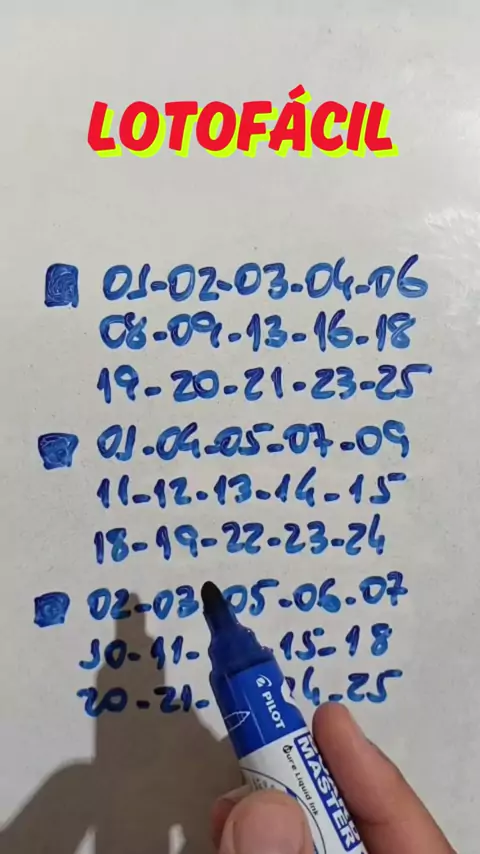 LOTOFÁCIL
01-02-03-04-06
08-09-13-16-18
19-20-21-23-25
01-04-05-07-09
11-12-13-14-15
18-19-22-23-24
02-03 05-06-07
10-11- 15-18
20-21- 24-25
PILOT
MASTER
Pure Liquid Ink